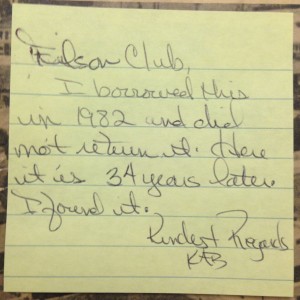 Filson Club,
I borrowed this
in 1982 and did
not return it. Here
it is 34 years later.
I found it.
Kindest Regards
KFB